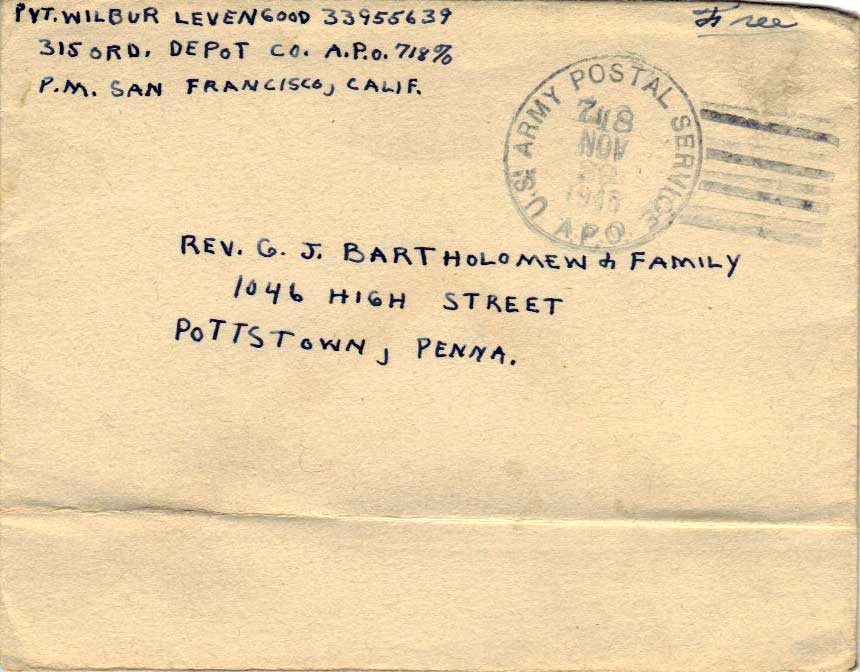 PVT. WILBUR LEVENGOOD 33955639
315 ORD. DEPOT CO. A.P.O. 718 %
P.M. SAN FRANCISCO, CALIF.
Free
U.S. ARMY POSTAL SERVICE
718
NOV
1945
A.P.O.
REV. G. J. BARTHOLOMEW & FAMILY
1046 HIGH STREET
POTTSTOWN, PENNA.